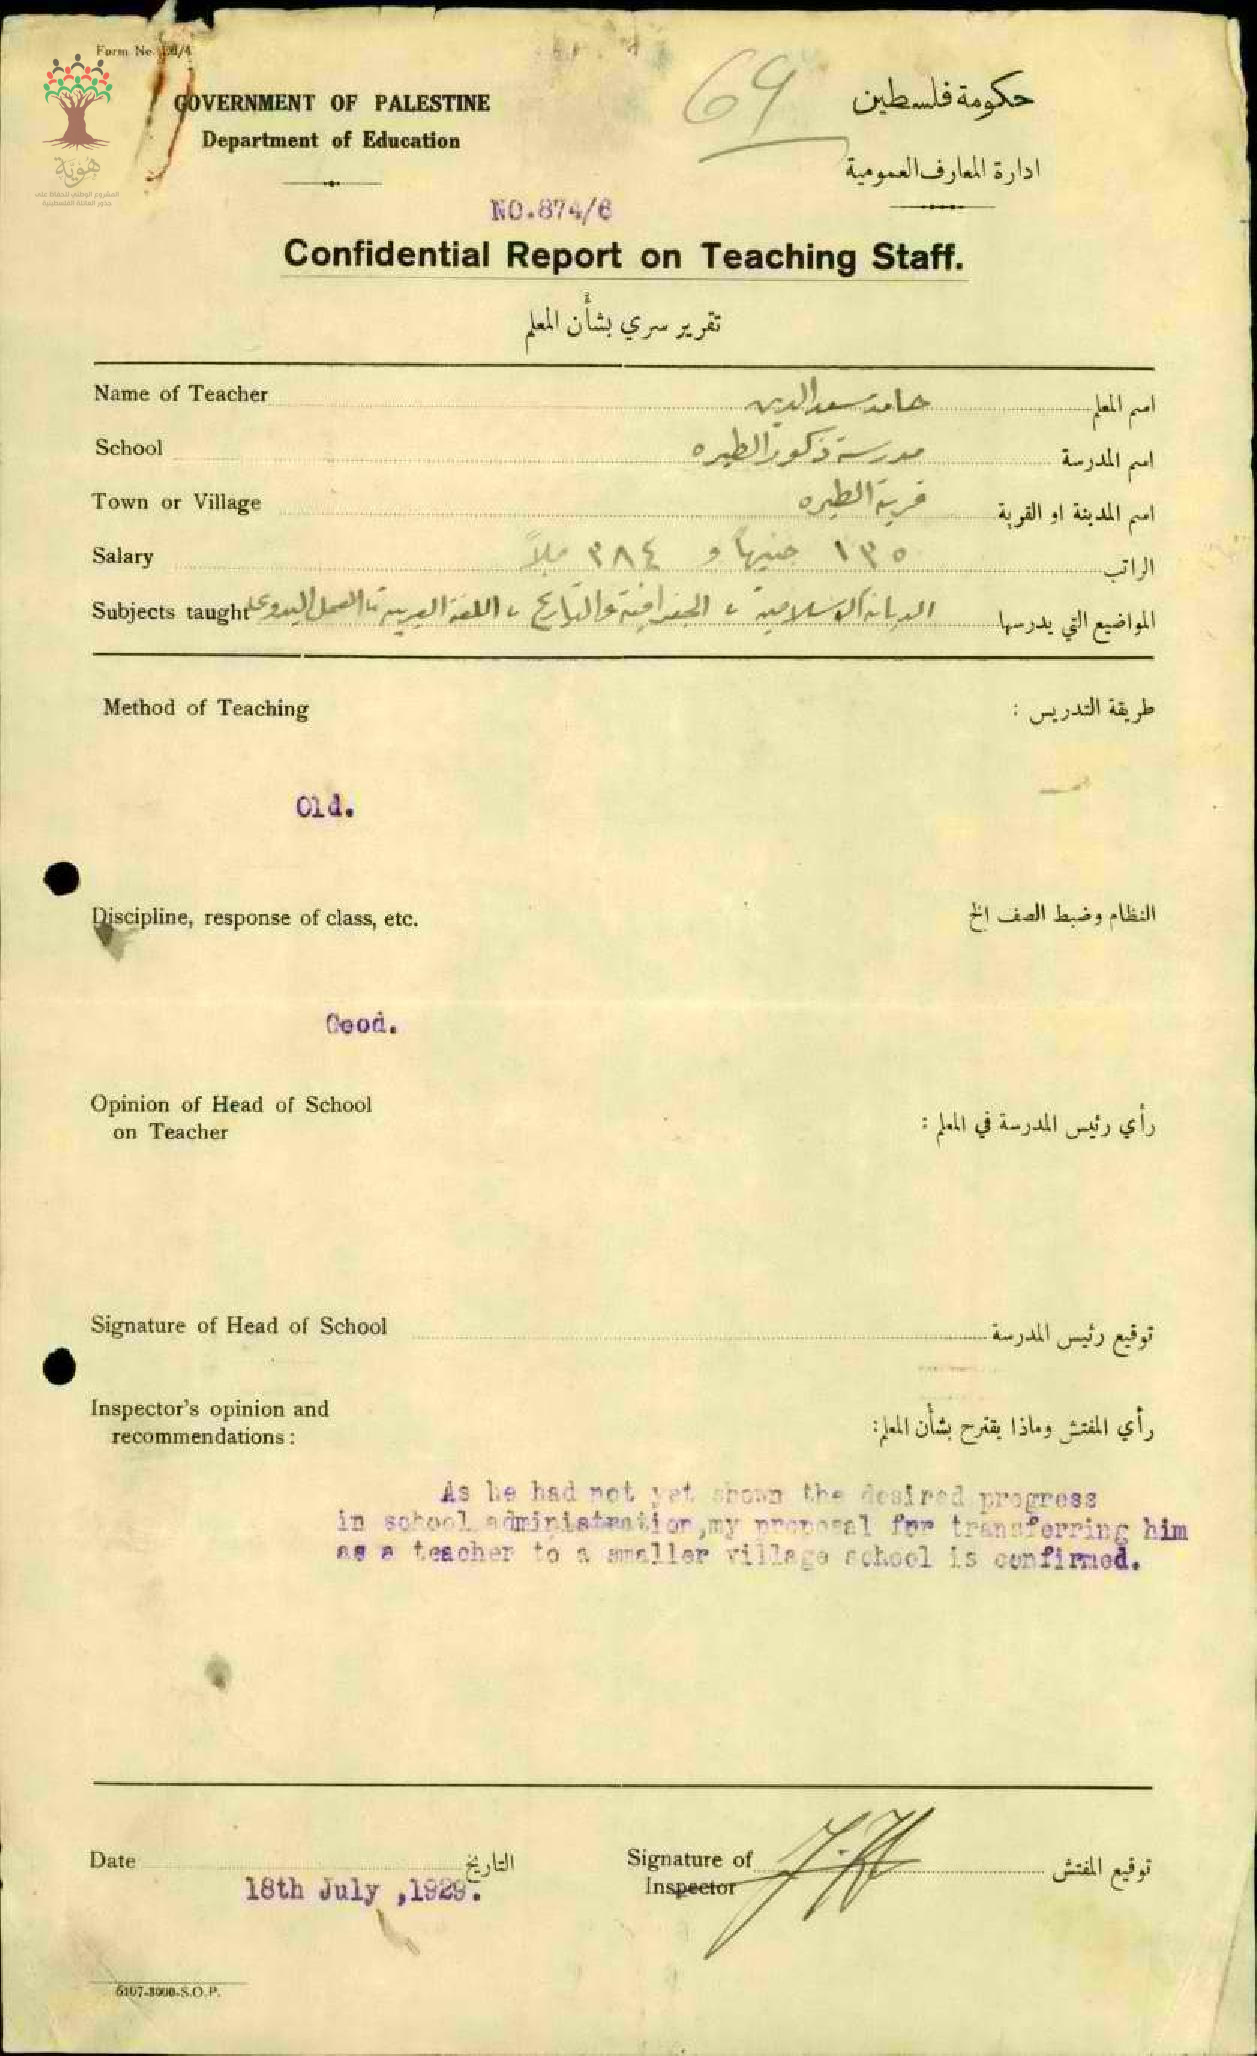 Form No. Ed/4
GOVERNMENT OF PALESTINE
Department of Education
69
حكومة فلسطين
ادارة المعارف العمومية
هوية
المشروع الوطني للحفاظ على
جذور العائلة الفلسطينية
NO.874/6
Confidential Report on Teaching Staff.
تقرير سري بشأن المعلم
Name of Teacher حامد سعد الدين اسم المعلم
School مدرسة ذكور الطيره اسم المدرسة
Town or Village قرية الطيره اسم المدينة او القرية
Salary ١٣٥ جنيهاً و ٣٨٤ ملاً الراتب
Subjects taught الديانة الاسلامية ، الجغرافية والتاريخ ، اللغة العربية ، العمل اليدوي المواضيع التي يدرسها
Method of Teaching طريقة التدريس :
Old.
Discipline, response of class, etc. النظام وضبط الصف الخ
Good.
Opinion of Head of School
on Teacher
رأي رئيس المدرسة في المعلم :
Signature of Head of School توقيع رئيس المدرسة
Inspector's opinion and
recommendations :
رأي المفتش وماذا يقترح بشأن المعلم:
As he had not yet shown the desired progress
in school administration,my proposal for transferring him
as a teacher to a smaller village school is confirmed.
Date التاريخ
18th July ,1929.
Signature of
Inspector
توقيع المفتش
6107-3000-S.O.P.